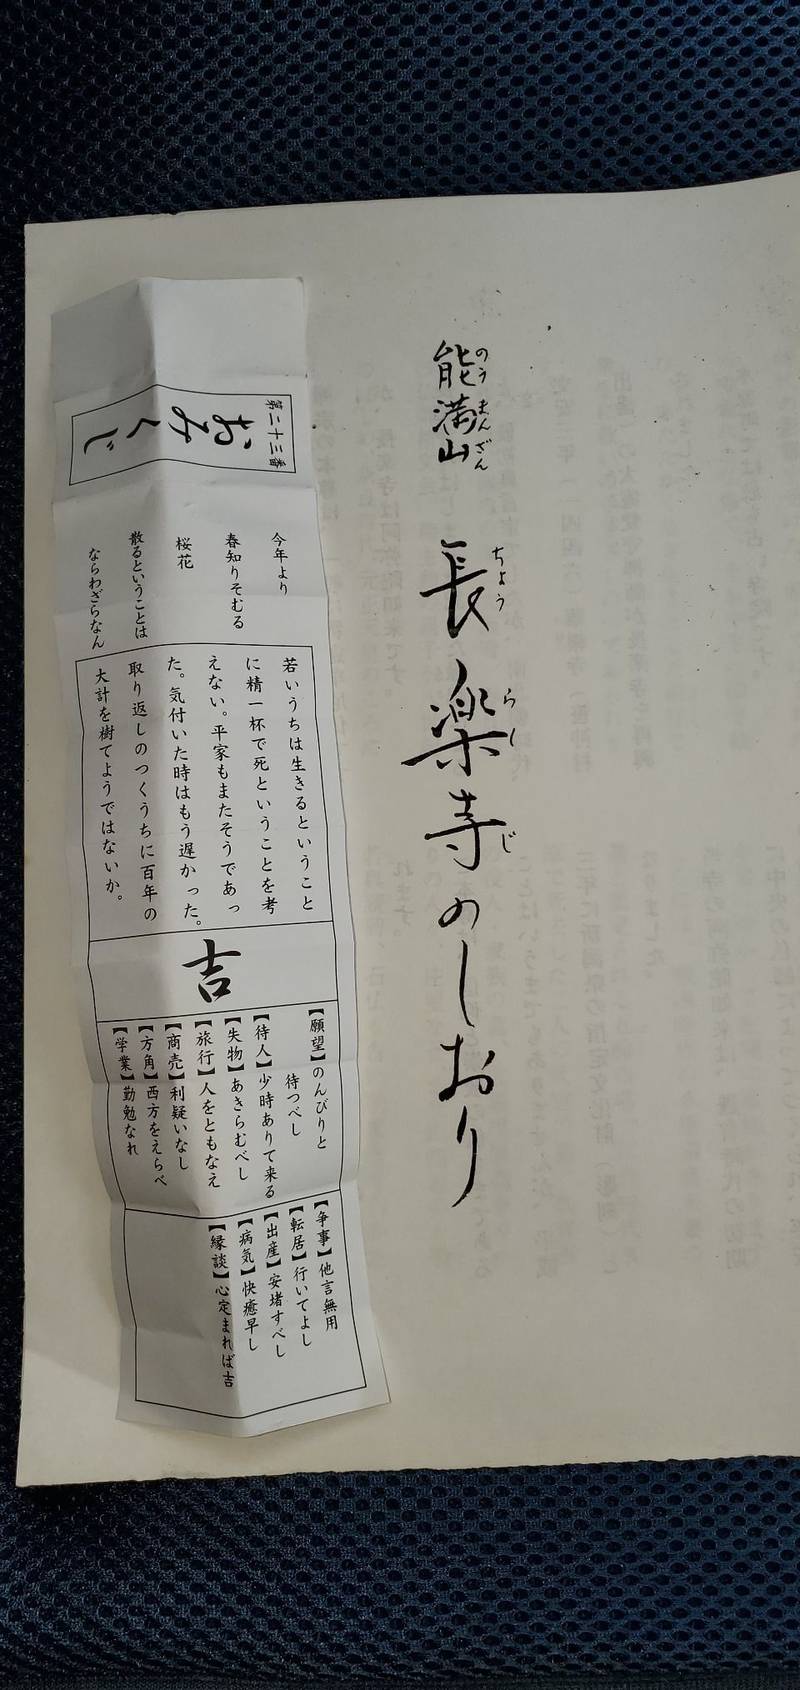 能満山 長楽寺のしおり
のうまんざん ちょうらくじ
第二十三番
おみくじ
今年より
春知りそむる
桜花
散るということは
ならわざらなん
若いうちは生きるということ
に精一杯で死ということを考
えない。平家もまたそうであっ
た。気付いた時はもう遅かった。
取り返しのつくうちに百年の
大計を樹てようではないか。
吉
【願望】のんびりと
待つべし
【待人】少時ありて来る
【失物】あきらむべし
【旅行】人をともなえ
【商売】利疑いなし
【方角】西方をえらべ
【学業】勤勉なれ
【争事】他言無用
【転居】行いてよし
【出産】安堵すべし
【病気】快癒早し
【縁談】心定まれば吉